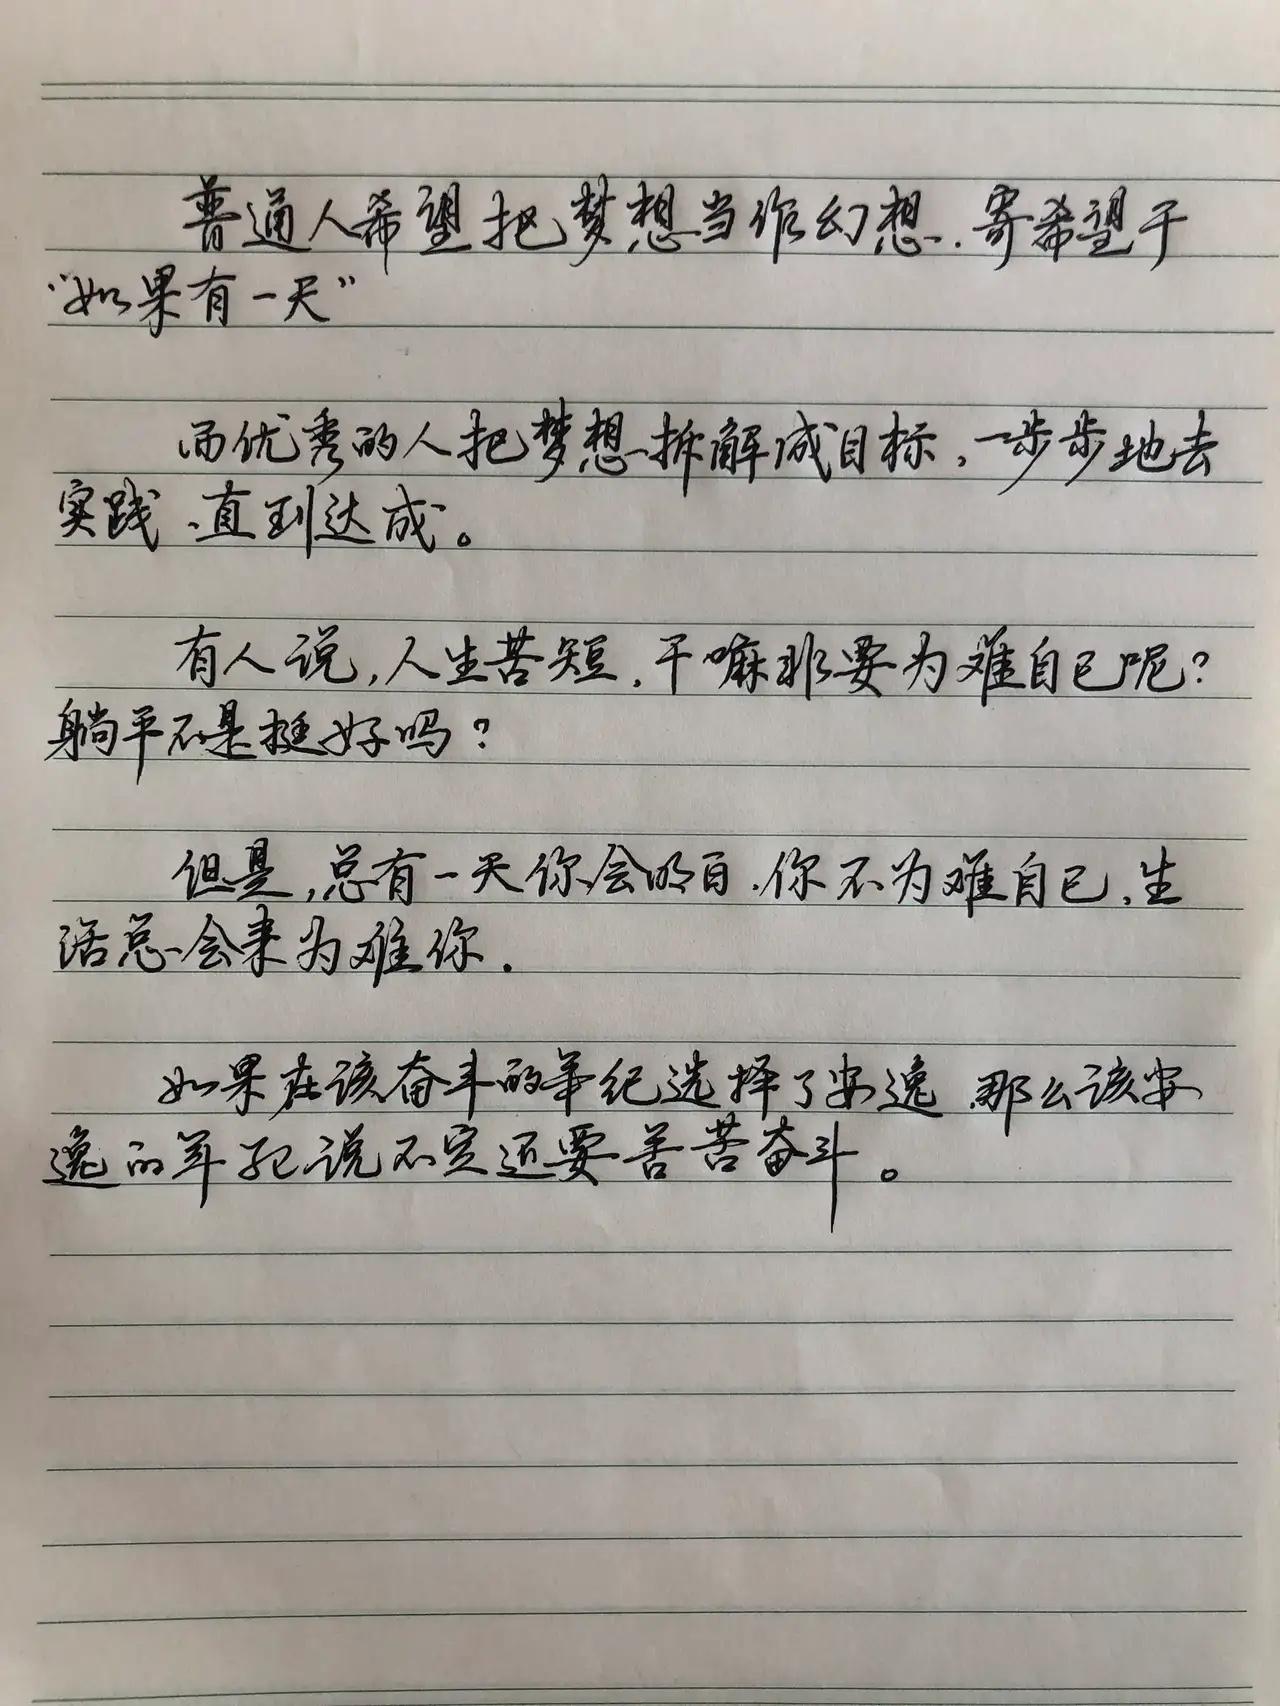 普通人希望把梦想当作幻想，寄希望于
“如果有一天”
而优秀的人把梦想拆解成目标，一步步地去
实践，直到达成。
有人说，人生苦短，干嘛非要为难自己呢？
躺平不是挺好吗？
但是，总有一天你会明白，你不为难自己，生
活总会来为难你.
如果在该奋斗的年纪选择了安逸，那么该安
逸的年纪说不定还要苦苦奋斗。